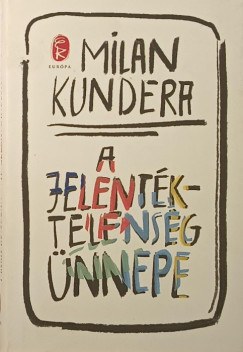 EURÓPA
MILAN
KUNDERA
A
JELENTÉK-
TELENSÉG
ÜNNEPE